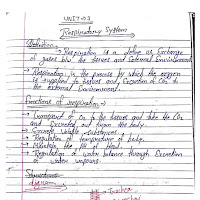 UNIT-03
Respiratory System
Definition :-
→ Respiration is a define as Exchange
of gases b/w the tissues and External Environment.
→ Respiration is the process by which the oxygen
is supplied to tissues and Excretion of CO2 to
the external Environment.
Functions of respiration →
→ Transport of O2 to the tissues and take the CO2
and Excreted out from the body.
→ Excrete volatile substances.
→ Regulation of temperature of body.
→ Maintain the pH of blood.
→ Regulation of water balance through Excretion
of water vapours.
Structure
diagram
Trachea